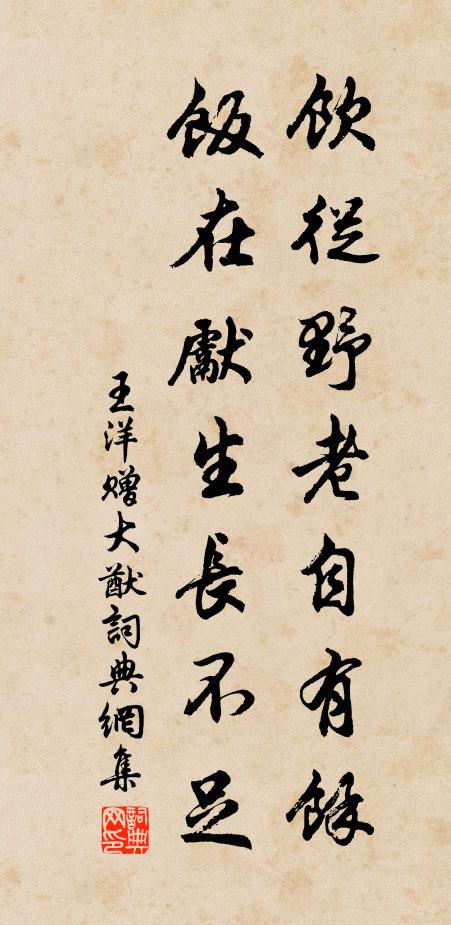 飲從野老自有餘
飯在獻生長不足
王洋贈大猷詞典網集
詞典網印